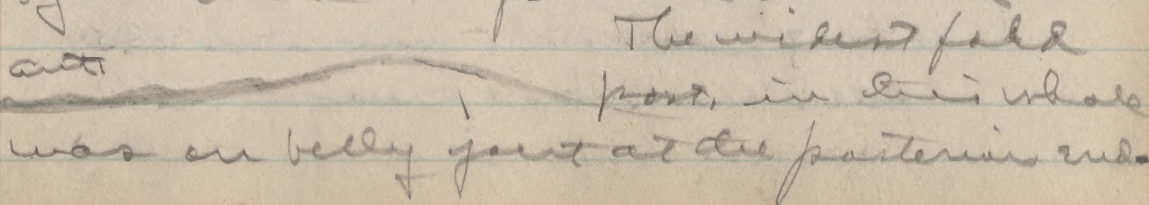 The widest fold
ant.
post. in this whale
was on belly just at the posterior end.